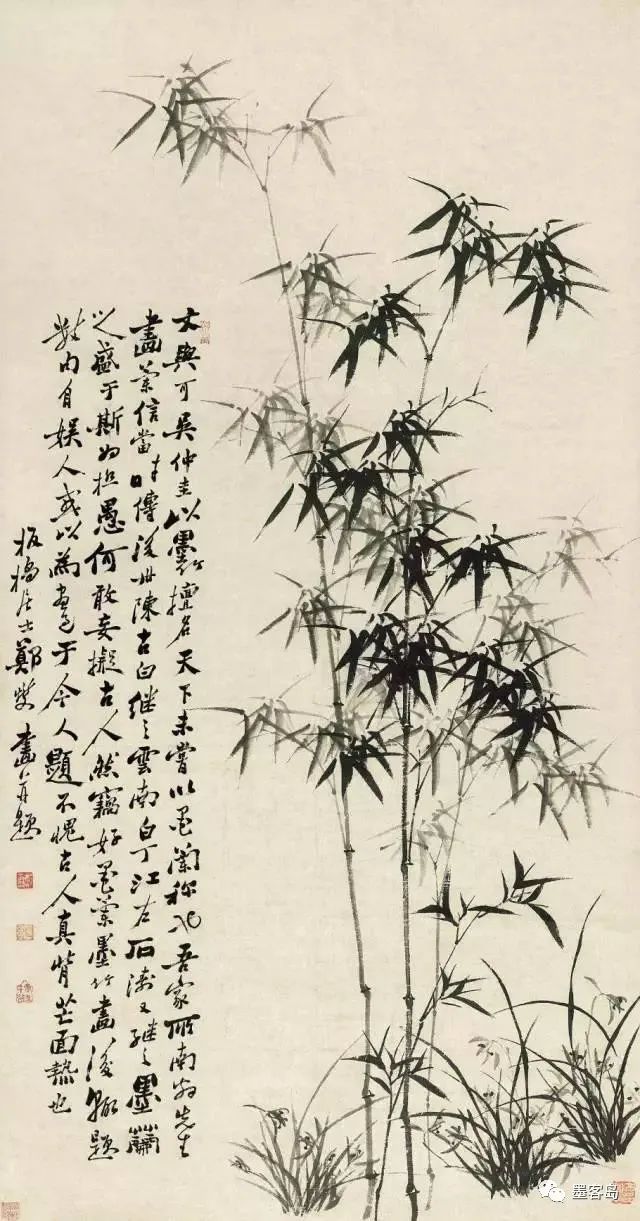 文與可吳仲圭以墨竹擅名天下未嘗以墨蘭称也吾家所南翁先生
畫蘭信當時傳後世陳古白继之雲南白丁江左石濤又继之墨蘭
之盛于斯为極愚何敢妄擬古人然竊好墨蘭墨竹畫後輒題
自娱人或以為畫于今人題不愧古人真背芒面熱也
板橋居士鄭燮畫并題
墨客岛